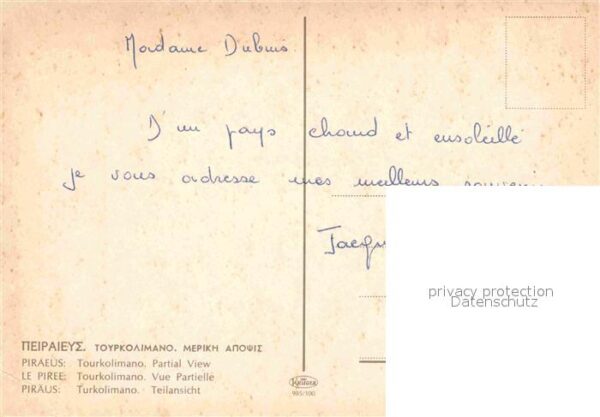 Madame Dubuis
D'un pays chaud et ensoleillé
je vous adresse mes meilleurs
privacy protection
Datenschutz
ΠΕΙΡΑΙΕΥΣ. ΤΟΥΡΚΟΛΙΜΑΝΟ. ΜΕΡΙΚΗ ΑΠΟΨΙΣ
PIRAEUS: Tourkolimano. Partial View
LE PIREE: Tourkolimano. Vue Partielle
PIRÄUS: Turkolimano. Teilansicht
KRÜGER
985/100